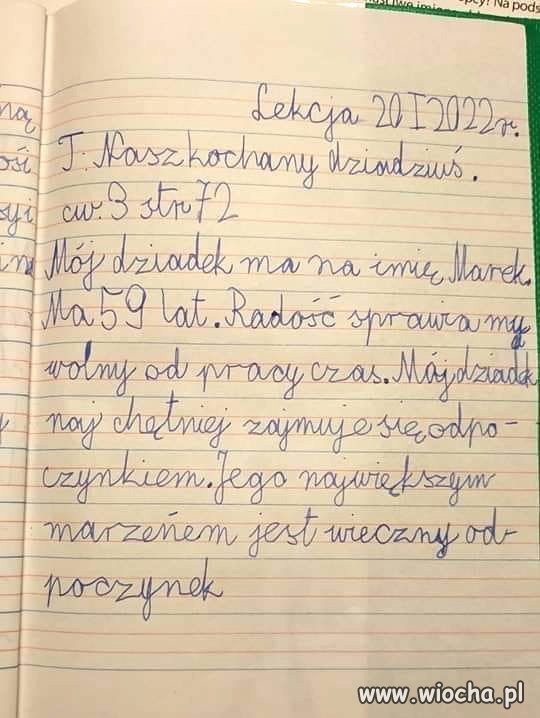 pcy? Na pods
ną
Lekcja 20 I 2022r.
ość
T: Nasz kochany dziadziuś.
syi
ćw. 3 str 72
Mój dziadek ma na imię Marek.
Ma 59 lat. Radość sprawia my
wolny od pracy czas. Mój dziadek
naj chętniej zajmuje się odpo-
czynkiem. Jego największym
marzeńem jest wieczny od-
poczynek
www.wiocha.pl